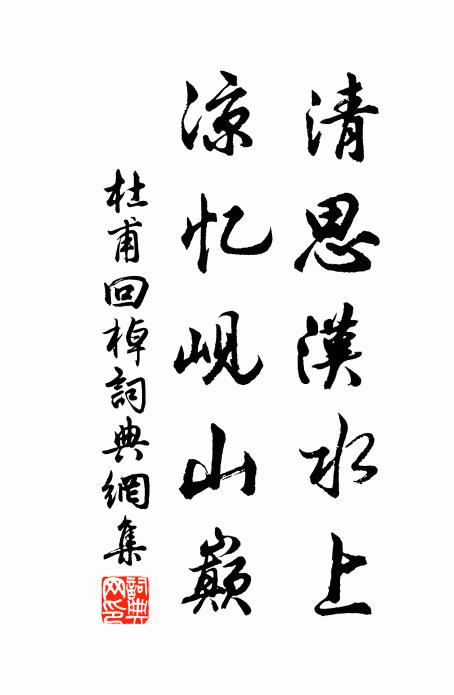 清思漢水上
凉忆峴山巅
杜甫回棹詞典網集
詞典网印